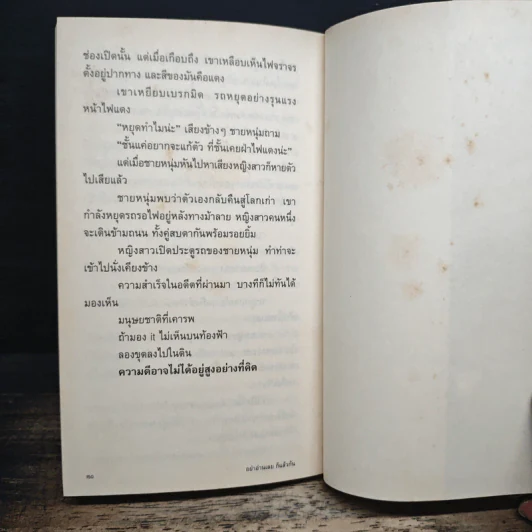 ช่องเปิดนั้น แต่เมื่อเกือบถึง เขาเหลือบเห็นไฟจราจร
ตั้งอยู่ปากทาง และสีของมันคือแดง
เขาเหยียบเบรกมิด รถหยุดอย่างรุนแรง
หน้าไฟแดง
"หยุดทำไมน่ะ" เสียงข้างๆ ชายหนุ่มถาม
"ฉันแค่อยากจะแก้ตัว ที่ฉันเคยฝ่าไฟแดงน่ะ"
แต่เมื่อชายหนุ่มหันไปหาเสียงหญิงสาวก็หายตัว
ไปเสียแล้ว
ชายหนุ่มพบว่าตัวเองกลับคืนสู่โลกเก่า เขา
กำลังหยุดรถรอไฟอยู่หลังทางม้าลาย หญิงสาวคนหนึ่ง
จะเดินข้ามถนน ทั้งคู่สบตากันพร้อมรอยยิ้ม
หญิงสาวเปิดประตูรถของชายหนุ่ม ทำท่าจะ
เข้าไปนั่งเคียงข้าง
ความสำเร็จในอดีตที่ผ่านมา บางทีก็ไม่ทันได้
มองเห็น
มนุษยชาติที่เคารพ
ถ้ามอง it ไม่เห็นบนท้องฟ้า
ลองขุดลงไปในดิน
ความดีอาจไม่ได้อยู่สูงอย่างที่คิด
อย่าอ่านเลย ก็แล้วกัน